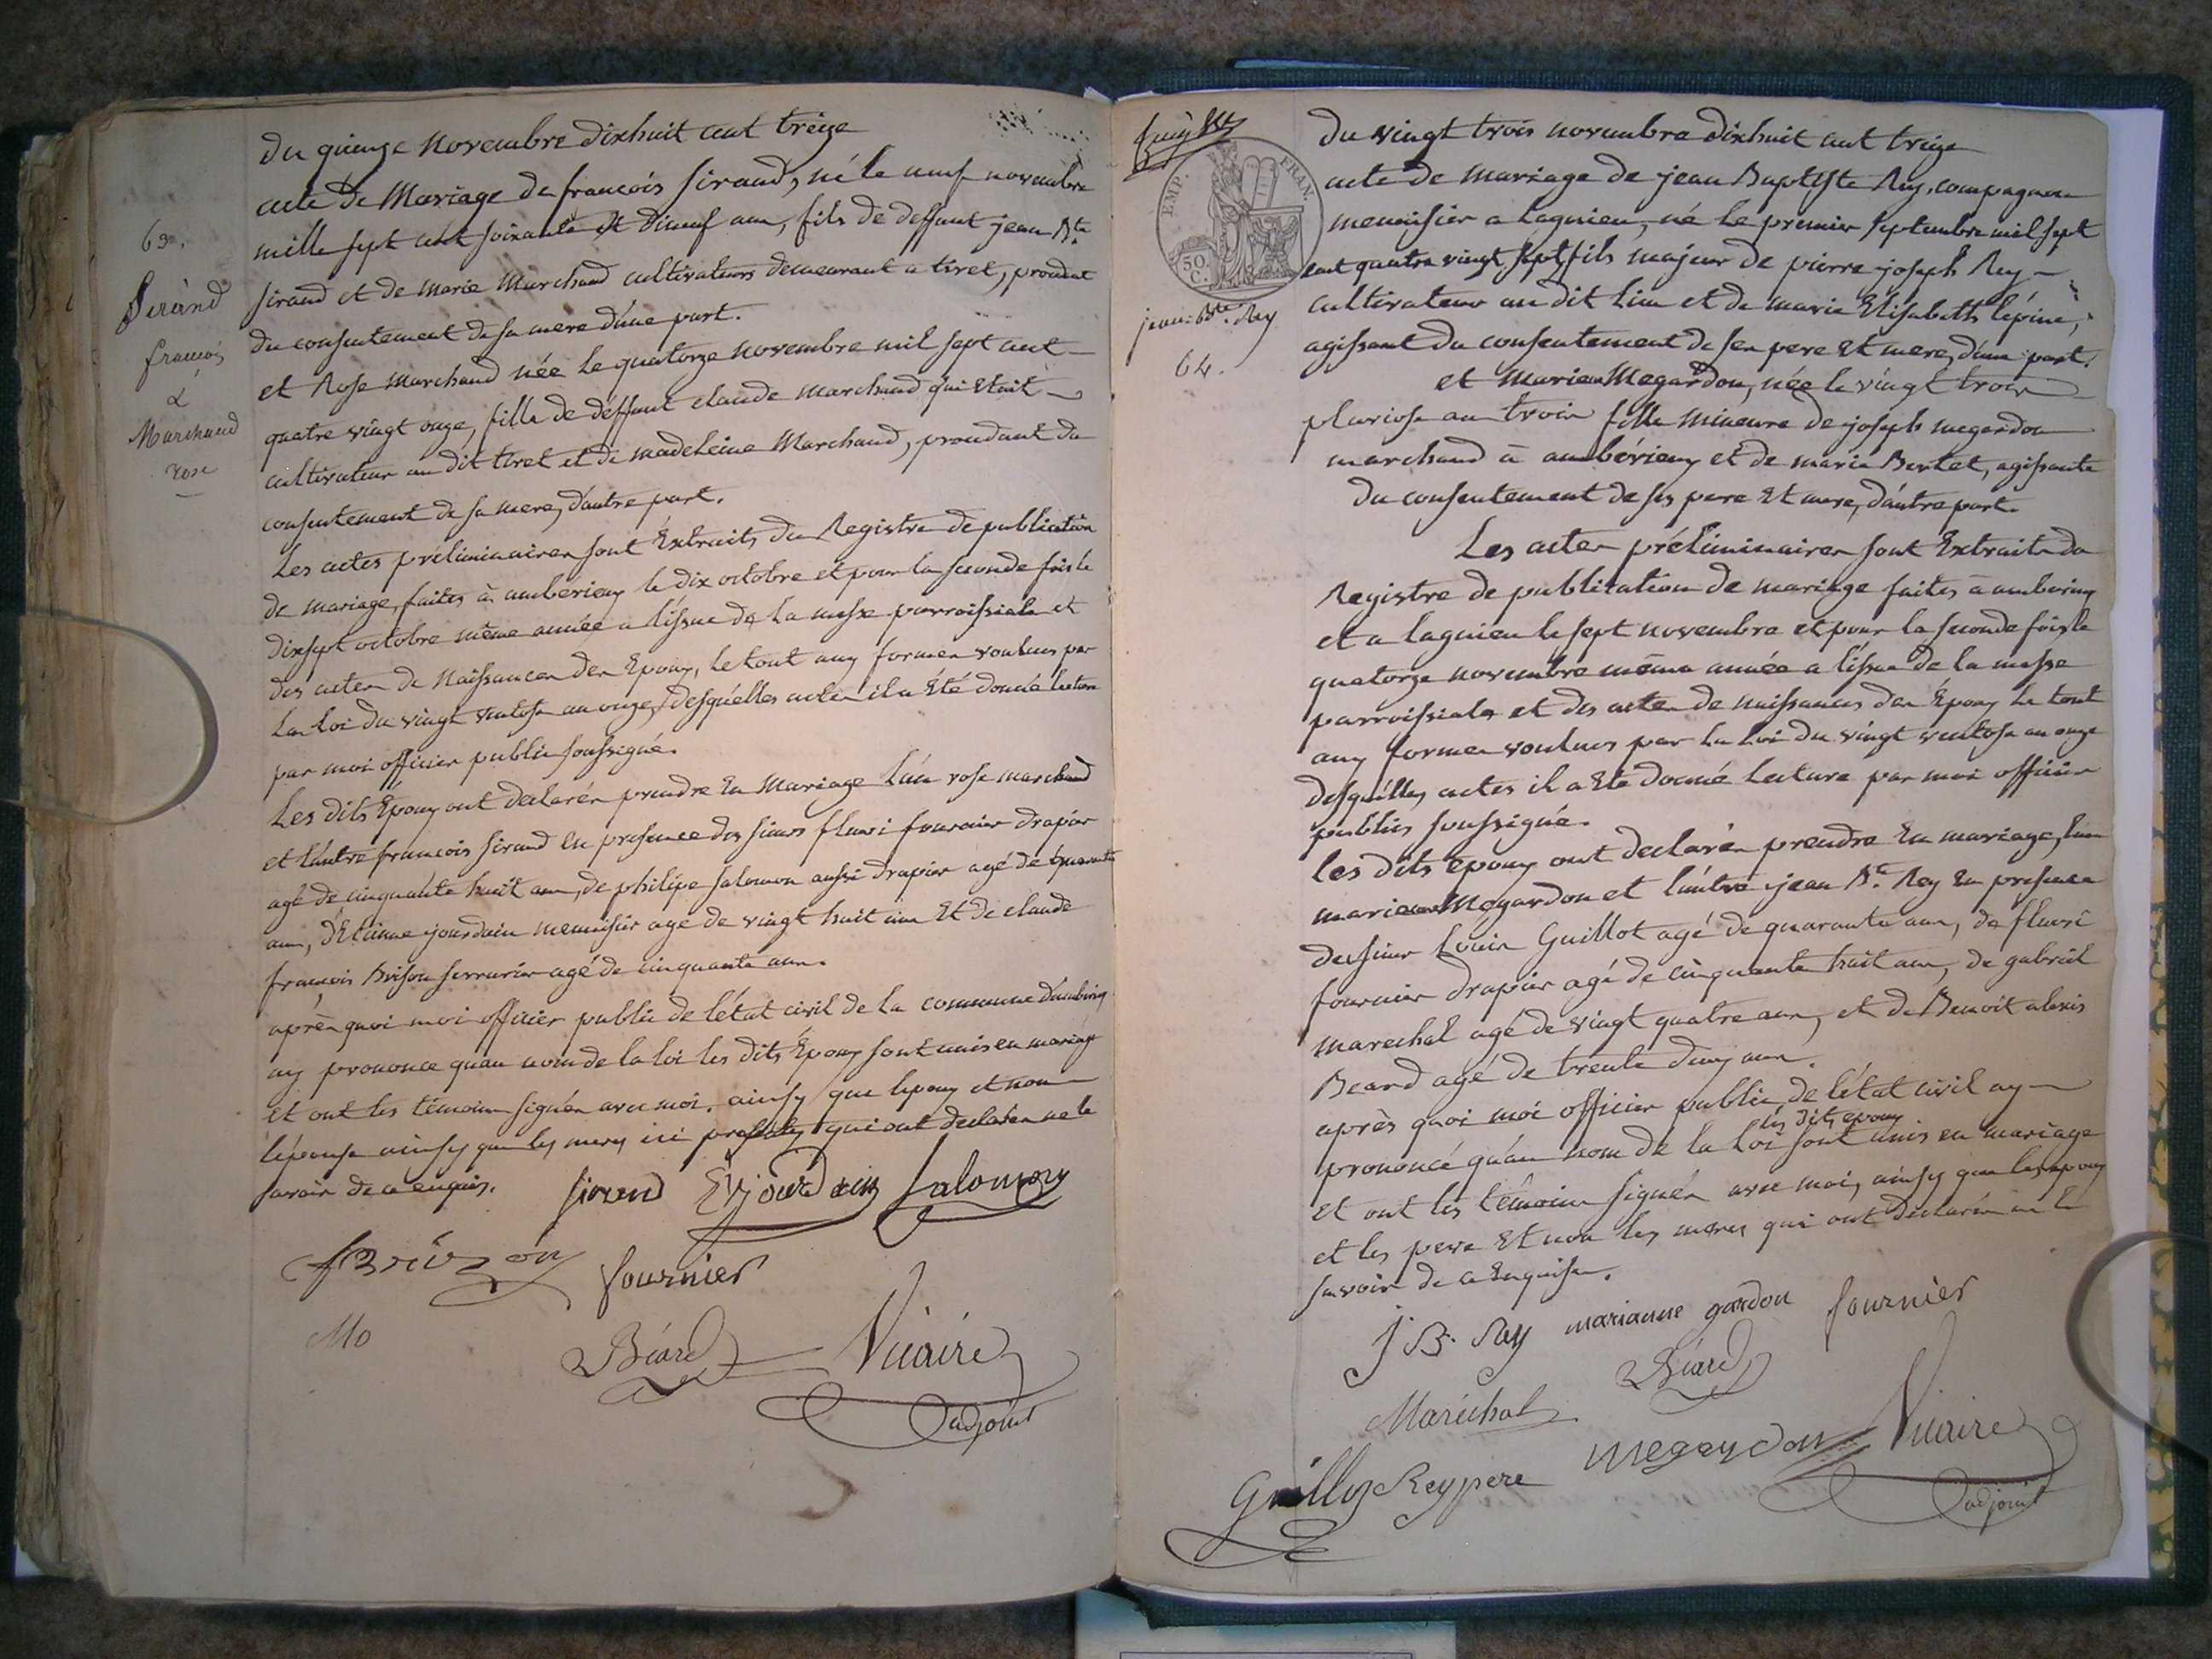 du quinze novembre dixhuit cent treize
acte de Mariage de francois sirand, né le neuf novembre
mille sept cent soixante et dineuf ans, fils de deffunt jean Bte
sirand et de marie Marchand cultivateurs demeurant a tiret, procedat
du consentement de sa mere d'une part.
et Rose marchand née le quatorze novembre mil sept cent
quatre vingt onze, fille de deffunt claude marchand qui etait
cultivateur au dit tiret et de madeleine Marchand, procedant du
consentement de sa mere, d'autre part.
Les actes préliminaires sont Extraits du Registre de publication
de mariage, faites à amberieux le dix octobre et pour la seconde fois le
dixsept octobre même année a l'issue de la messe parroissiale et
des actes de Naissances des Epoux, le tout aux formes voulues par
la Loi du vingt ventose an onze, desquelles actes il a été donné lecture
par moi officier public soussigné.
Les dits Epoux ont declarés prendre en Mariage l'un rose marchand
et l'autre francois sirand en presence des sieurs fleuri fournier drapier
agé de cinquante huit ans, de philipe salomon aussi drapier agé de
ans, d'Etienne jourdain menuisier age de vingt huit ans Et de claude
françois Brison serrurier agé de cinquante ans.
après quoi moi officier public de l'état civil de la commune d'amberieux
ay prononce quau nom de la loi les dits Epoux sont unis en mariage
et ont les témoins signés avec moi, ainsy que lepoux et non
l'épouse ainsy que les meres ici presentes qui ont declarés ne le
savoir de ce enquis.
sirand Ej ourdain Salomon
fBrison fournier
Mo
Béard Vicaire
adjoint
63.
Sirand
francois
&
Marchand
rose
EMP. FRAN.
50 C.
jean-Bte Rey
64.
du vingt trois novembre dixhuit cent treize
acte de mariage de jean Baptiste Rey, compagnon
menuisier a lagnieu, né le premier septembre mil sept
cent quatre vingt sept, fils majeur de pierre joseph Rey
cultivateur au dit lieu et de marie Elisabeth lépine,
agissant du consentement de ses pere et mere, d'une part.
et Marie Megardon, née le vingt trois
pluviose an trois fille mineure de joseph megardon
marchand à ambérieux et de marie Bertet, agissante
du consentement de ses pere et mere, d'autre part.
Les actes préliminaires sont Extraits du
Registre de publication de mariage faites à amberieux
et a lagnieu le sept novembre et pour la seconde fois le
quatorze novembre même année a l'issue de la messe
parroissiale et des actes de naissances des Epoux le tout
aux formes voulues par la Loi du vingt ventose an onze
desquelles actes il a ete donné lecture par moi officier
public soussigné.
les dits epoux ont declarés prendre en mariage, l'un
marie Megardon et l'autre jean Bte Rey en presence
des sieur Louis Guillot agé de quarante ans, de fleuri
fournier drapier agé de cinquante huit ans, de gabriel
marechal agé de vingt quatre ans, et de Benoit alexis
Beard agé de trente deux ans.
après quoi moi officier public de l'état civil ay
les dits epoux
prononcé qu'au nom de la loi sont unis en mariage
et ont les témoins signés avec moi, ainsy que les epoux
et les pere et non les meres qui ont declarés ne le
savoir de ce enquise.
j B. Rey marianne gardon fournier
Béard
Maréchal
megardon Vicaire
Guillot Rey pere
adjoint